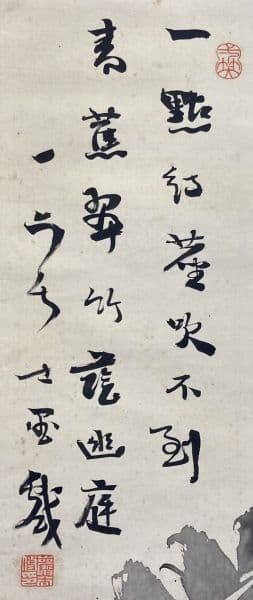 一點紅塵吹不到
青蕉翠竹蔭幽庭
一居士墨戲